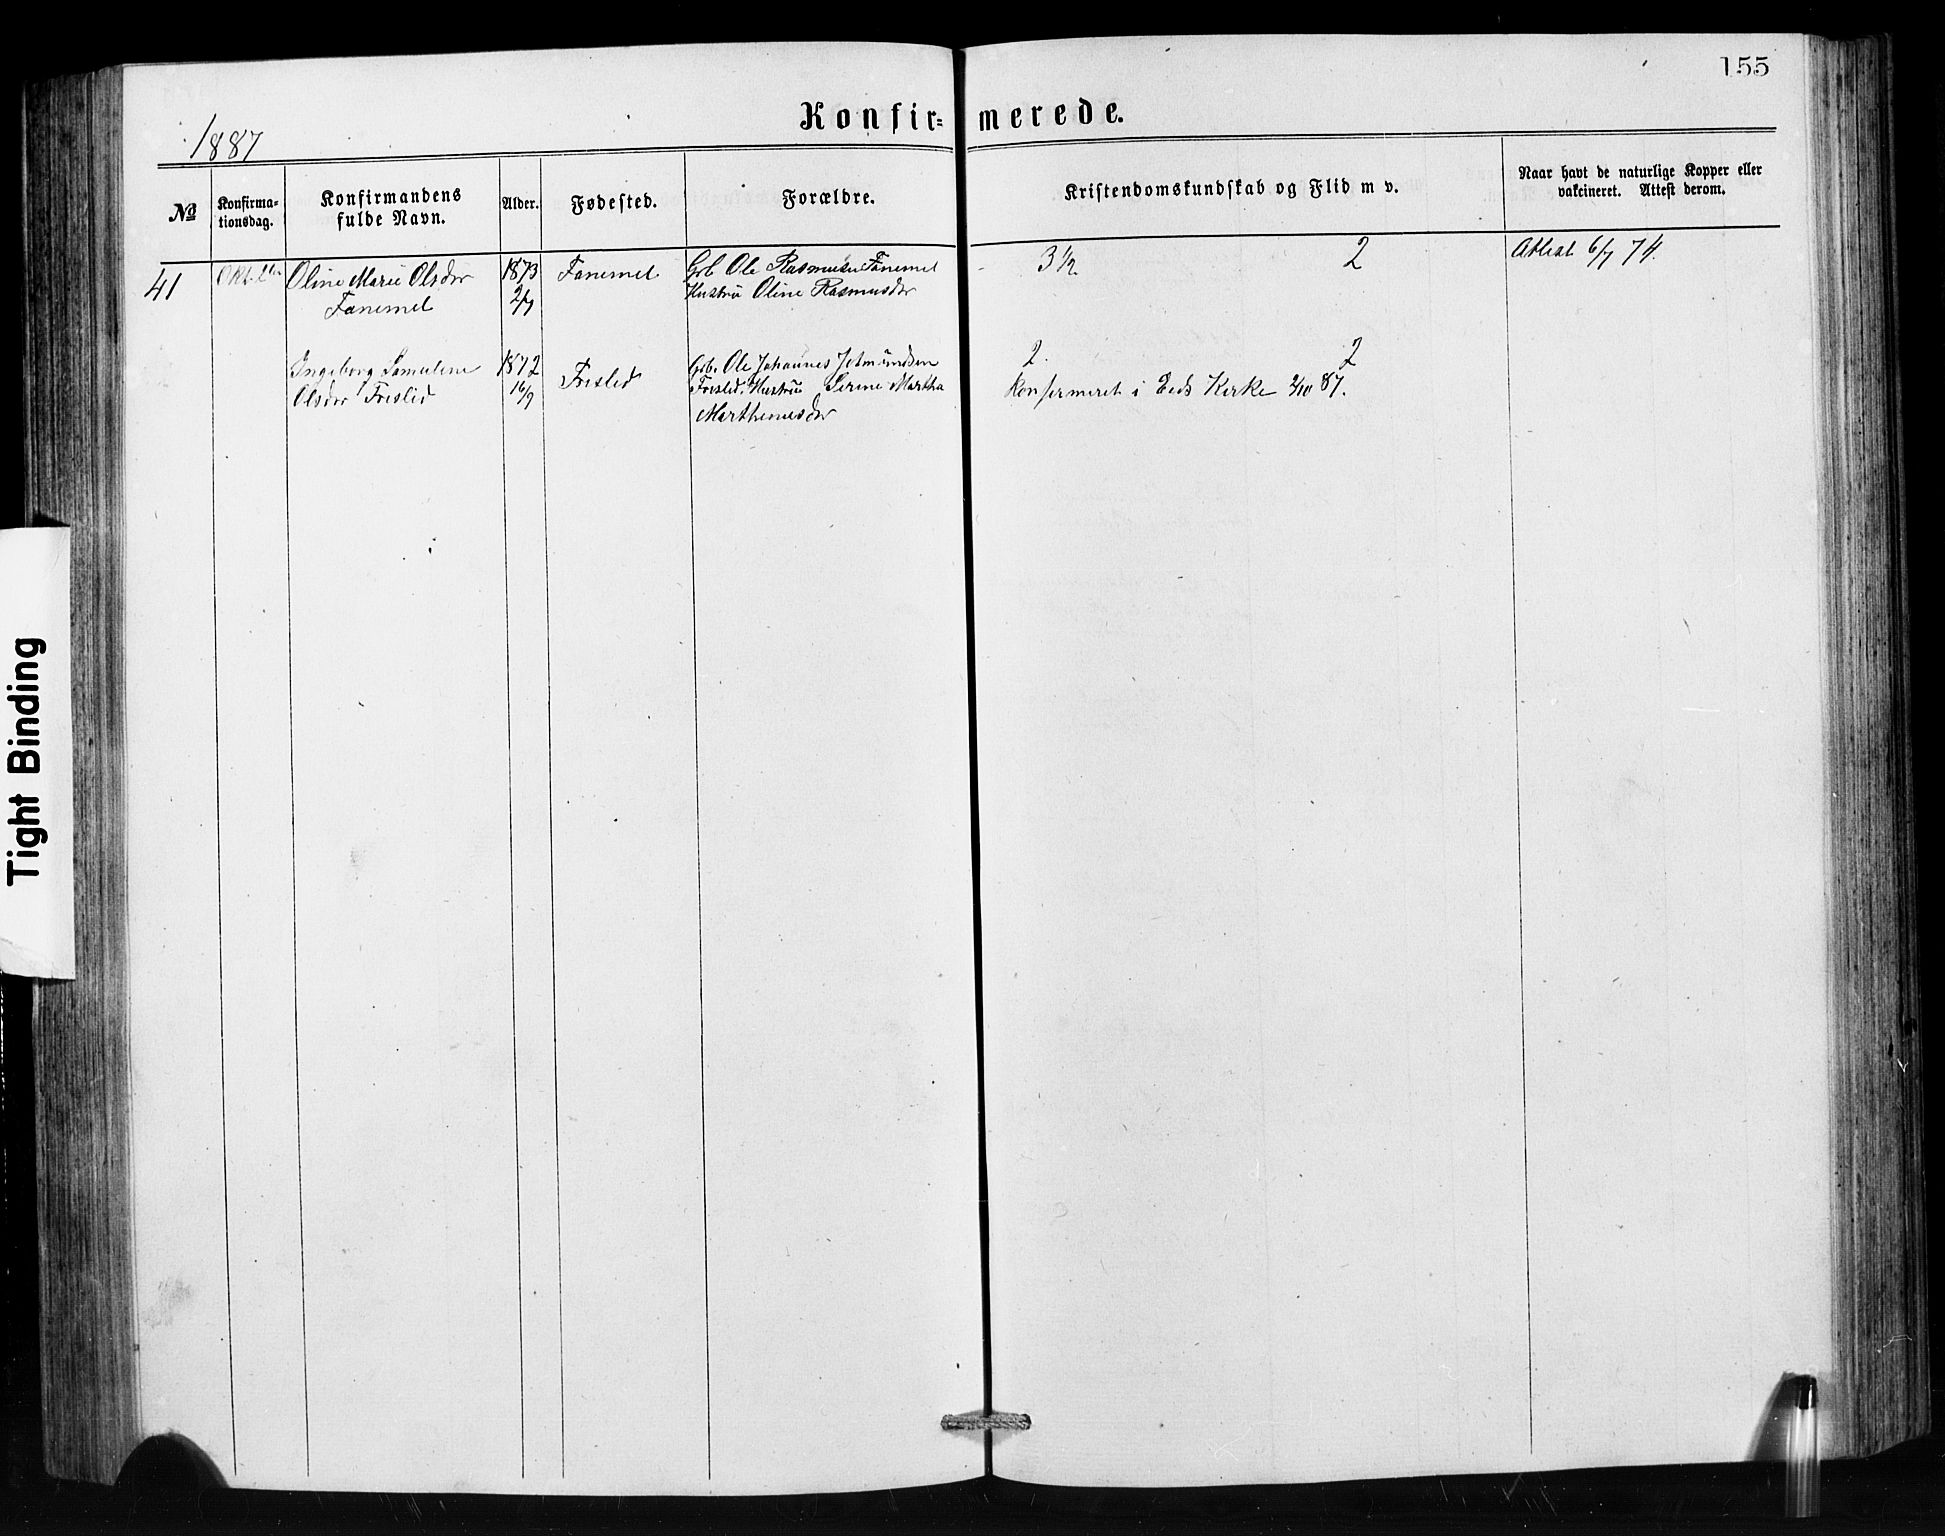 155
Konfir= merede.
1887
№ Konfirma-tionsdag. Konfirmandens fulde Navn. Alder. Fødested. Forældre. Kristendomskundskab og Flid m v. Naar havt de naturlige Kopper eller vakcineret. Attest derom.
41 Oline Marie Olsdr 1873 Fanemel Grb Ole Rasmusen Fanemel 3½ 2 Attest 6/7 74.
Fanemel 2/9 Hustru Oline Rasmusdr
Ingeborg Samuline 1872 Frislid Grb. Ole Johannes 2. 2
Olsdr Frislid 16/9 Frislid, Hustru Serine Martha Konfirmeret i Eeds Kirke 2/10 87.
Marthinusdr
Tight Binding